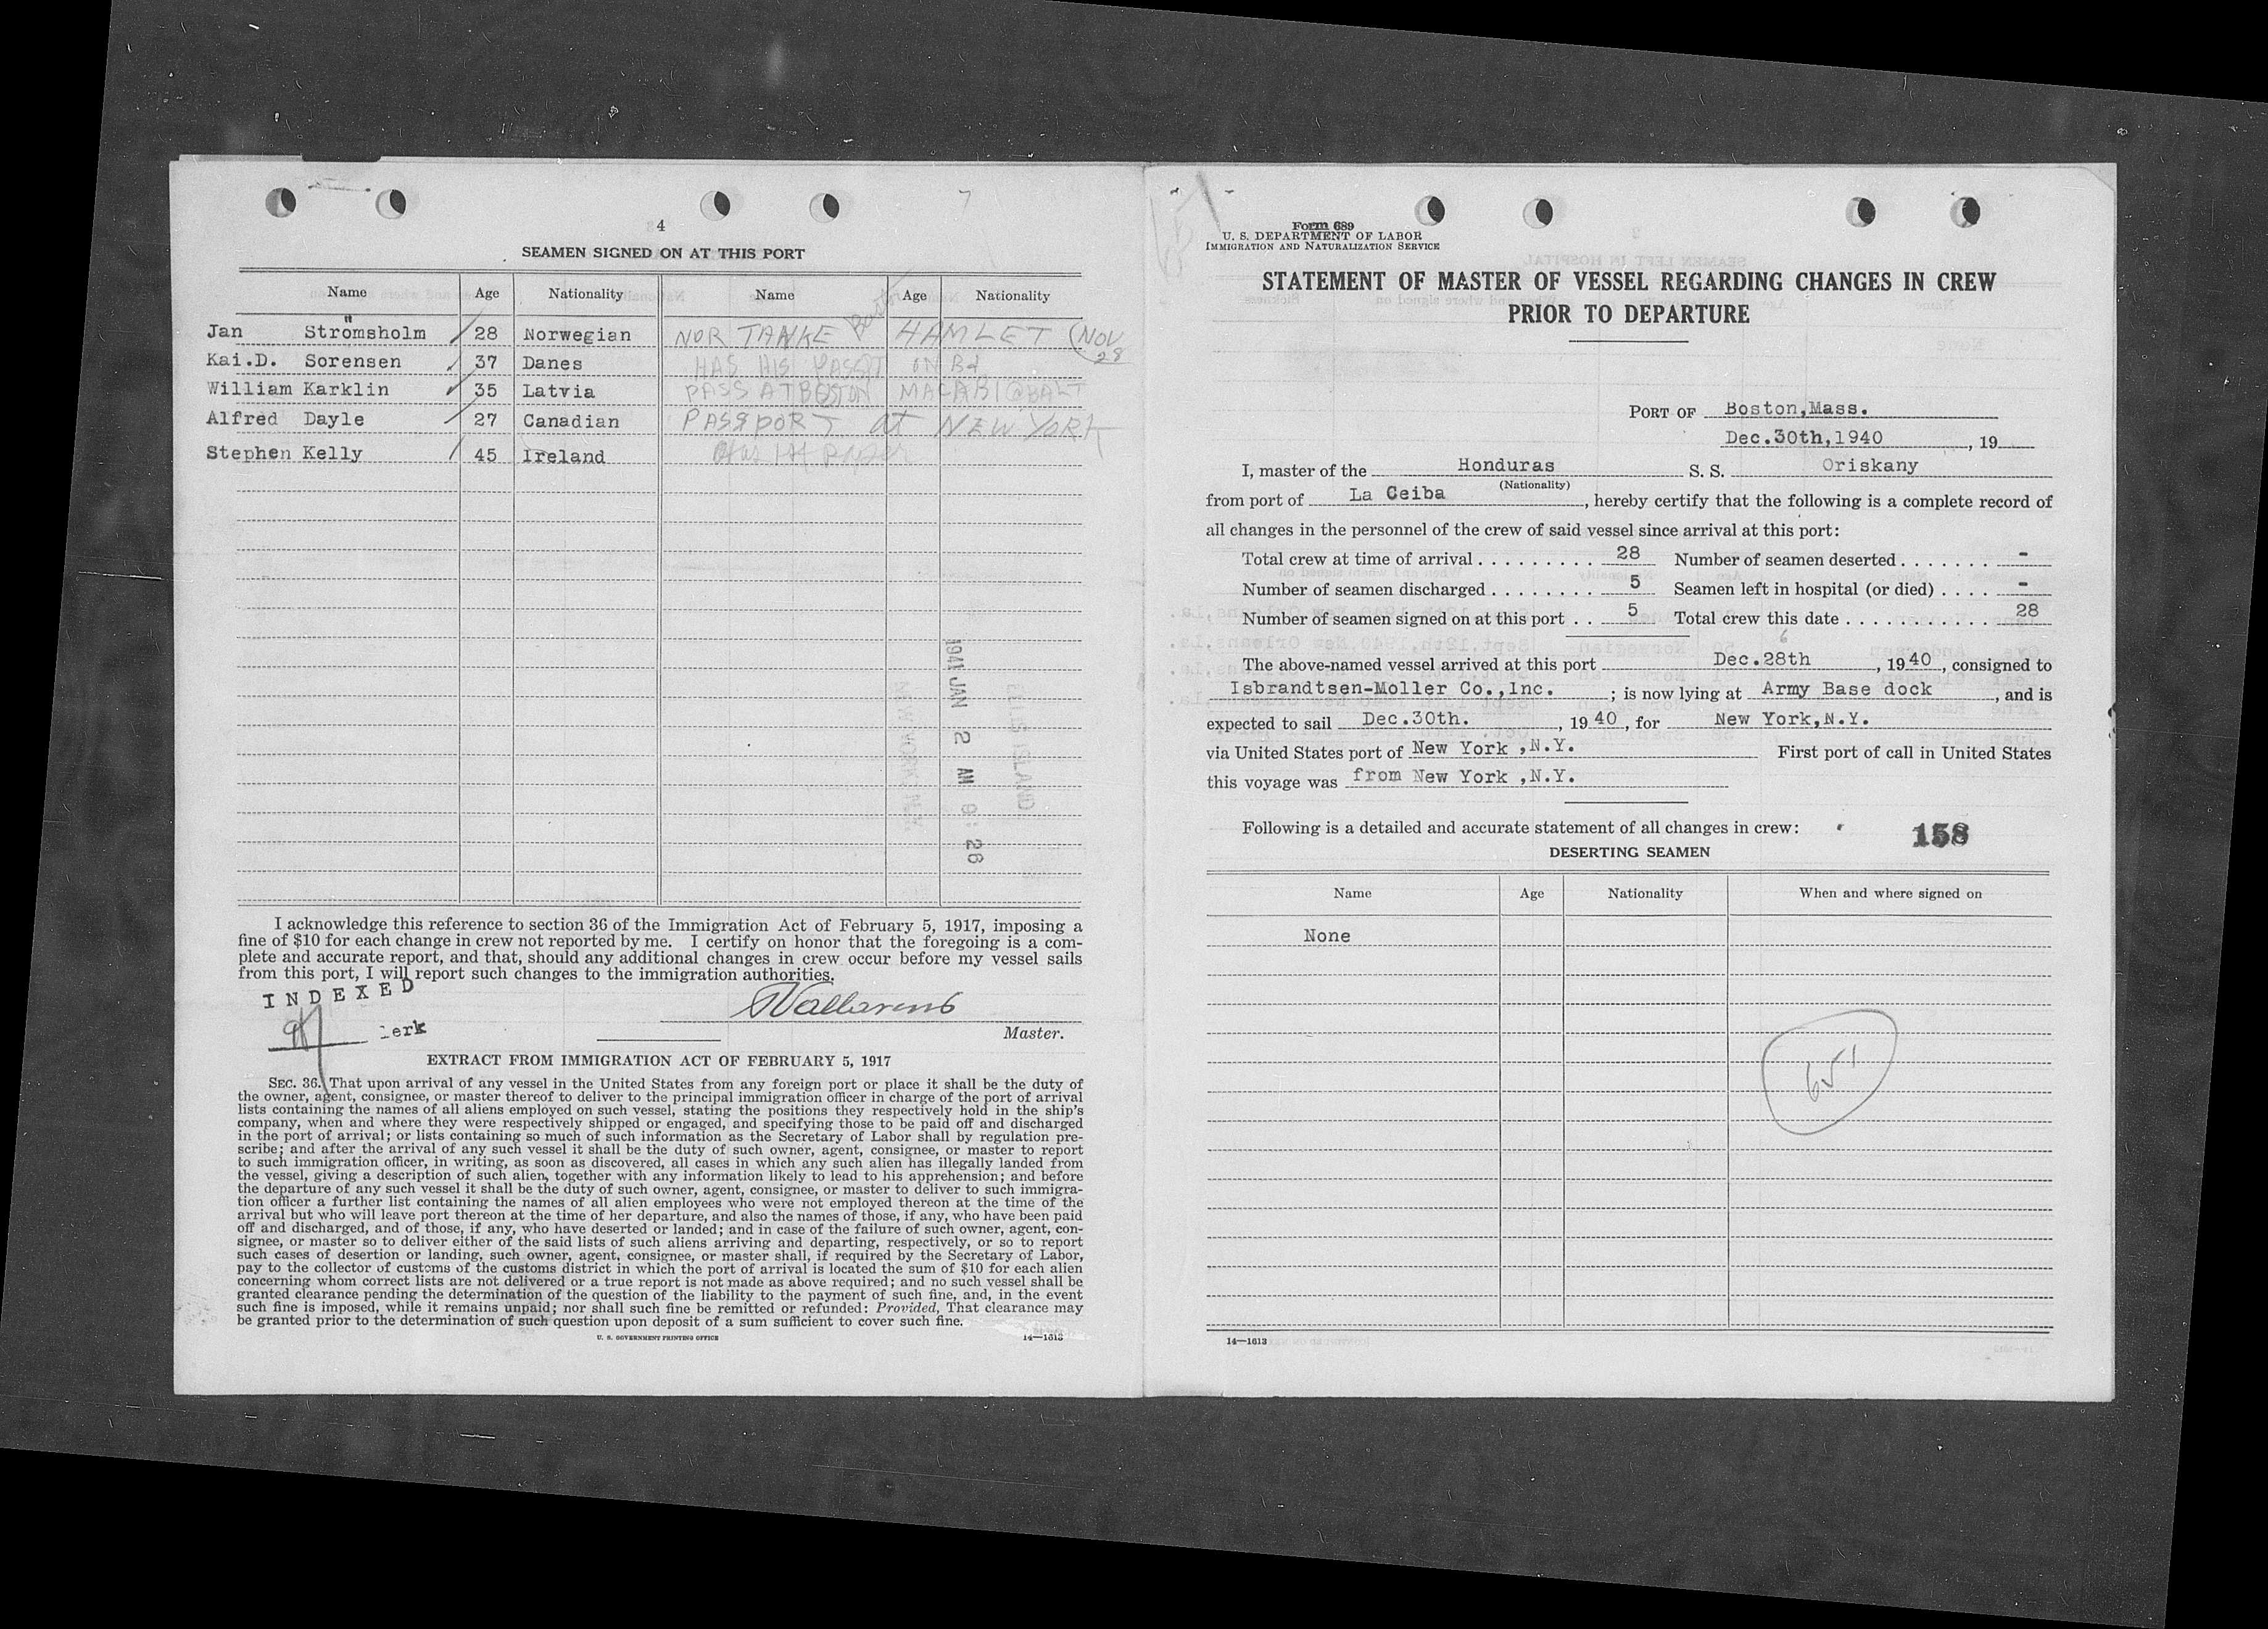 4
SEAMEN SIGNED ON AT THIS PORT
Name Age Nationality Name Age Nationality
Jan Strömsholm 28 Norwegian NOR TANKE HAMLET (NOV 28
Kai.D. Sorensen 37 Danes HAS HIS PASS'T ON Bd
William Karklin 35 Latvia PASS AT BOSTON
Alfred Dayle 27 Canadian PASSPORT at NEW YORK
Stephen Kelly 45 Ireland
1941 JAN 2 AM 9:26
ELLIS ISLAND
I acknowledge this reference to section 36 of the Immigration Act of February 5, 1917, imposing a
fine of $10 for each change in crew not reported by me. I certify on honor that the foregoing is a com-
plete and accurate report, and that, should any additional changes in crew occur before my vessel sails
from this port, I will report such changes to the immigration authorities.
INDEXED
lerk
Master.
EXTRACT FROM IMMIGRATION ACT OF FEBRUARY 5, 1917
SEC. 36. That upon arrival of any vessel in the United States from any foreign port or place it shall be the duty of
the owner, agent, consignee, or master thereof to deliver to the principal immigration officer in charge of the port of arrival
lists containing the names of all aliens employed on such vessel, stating the positions they respectively hold in the ship's
company, when and where they were respectively shipped or engaged, and specifying those to be paid off and discharged
in the port of arrival; or lists containing so much of such information as the Secretary of Labor shall by regulation pre-
scribe; and after the arrival of any such vessel it shall be the duty of such owner, agent, consignee, or master to report
to such immigration officer, in writing, as soon as discovered, all cases in which any such alien has illegally landed from
the vessel, giving a description of such alien, together with any information likely to lead to his apprehension; and before
the departure of any such vessel it shall be the duty of such owner, agent, consignee, or master to deliver to such immigra-
tion officer a further list containing the names of all alien employees who were not employed thereon at the time of the
arrival but who will leave port thereon at the time of her departure, and also the names of those, if any, who have been paid
off and discharged, and of those, if any, who have deserted or landed; and in case of the failure of such owner, agent, con-
signee, or master so to deliver either of the said lists of such aliens arriving and departing, respectively, or so to report
such cases of desertion or landing, such owner, agent, consignee, or master shall, if required by the Secretary of Labor,
pay to the collector of customs of the customs district in which the port of arrival is located the sum of $10 for each alien
concerning whom correct lists are not delivered or a true report is not made as above required; and no such vessel shall be
granted clearance pending the determination of the question of the liability to the payment of such fine, and, in the event
such fine is imposed, while it remains unpaid; nor shall such fine be remitted or refunded: Provided, That clearance may
be granted prior to the determination of such question upon deposit of a sum sufficient to cover such fine.
U. S. GOVERNMENT PRINTING OFFICE 14—1613
Form 689
U. S. DEPARTMENT OF LABOR
IMMIGRATION AND NATURALIZATION SERVICE
STATEMENT OF MASTER OF VESSEL REGARDING CHANGES IN CREW
PRIOR TO DEPARTURE
PORT OF Boston,Mass.
Dec.30th,1940, 19
I, master of the Honduras S. S. Oriskany
(Nationality)
from port of La Ceiba, hereby certify that the following is a complete record of
all changes in the personnel of the crew of said vessel since arrival at this port:
Total crew at time of arrival . . . . . . . . . 28 Number of seamen deserted . . . . . . . -
Number of seamen discharged . . . . . . . . 5 Seamen left in hospital (or died) . . . . -
Number of seamen signed on at this port . . 5 Total crew this date . . . . . . . . . . . 28
The above-named vessel arrived at this port Dec.28th, 1940, consigned to
Isbrandtsen-Moller Co.,Inc. ; is now lying at Army Base dock, and is
expected to sail Dec.30th., 1940, for New York,N.Y.
via United States port of New York ,N.Y. First port of call in United States
this voyage was from New York ,N.Y.
Following is a detailed and accurate statement of all changes in crew:
158
DESERTING SEAMEN
Name Age Nationality When and where signed on
None
651
14—1613